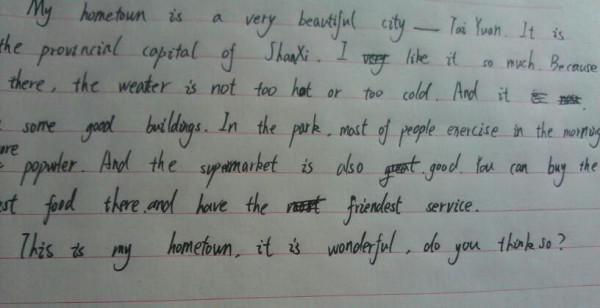 My hometown is a very beautiful city — Tai Yuan. It is
the provincial capital of ShanXi. I like it so much. Because
there, the weater is not too hot or too cold. And it
some good buildings. In the park, most of people exercise in the morning
populer. And the supermarket is also good. You can buy the
est food there. and have the friendest service.
This is my hometown, it is wonderful, do you think so?